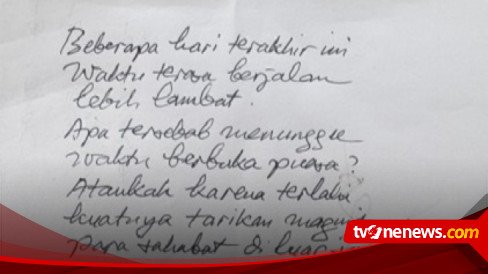 Beberapa hari terakhir ini
Waktu terasa berjalan
lebih lambat.
Apa tersebab menunggu
waktu berbuka puasa?
Ataukah karena terlalu
kuatnya tarikan
para sahabat di luar
tvonenews.com